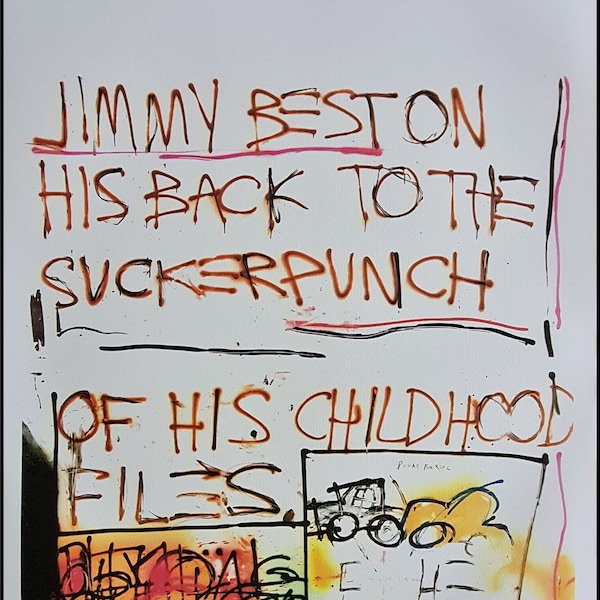 JIMMY BEST ON
HIS BACK TO THE
SUCKERPUNCH
OF HIS CHILDHOOD
FILES.
E HE